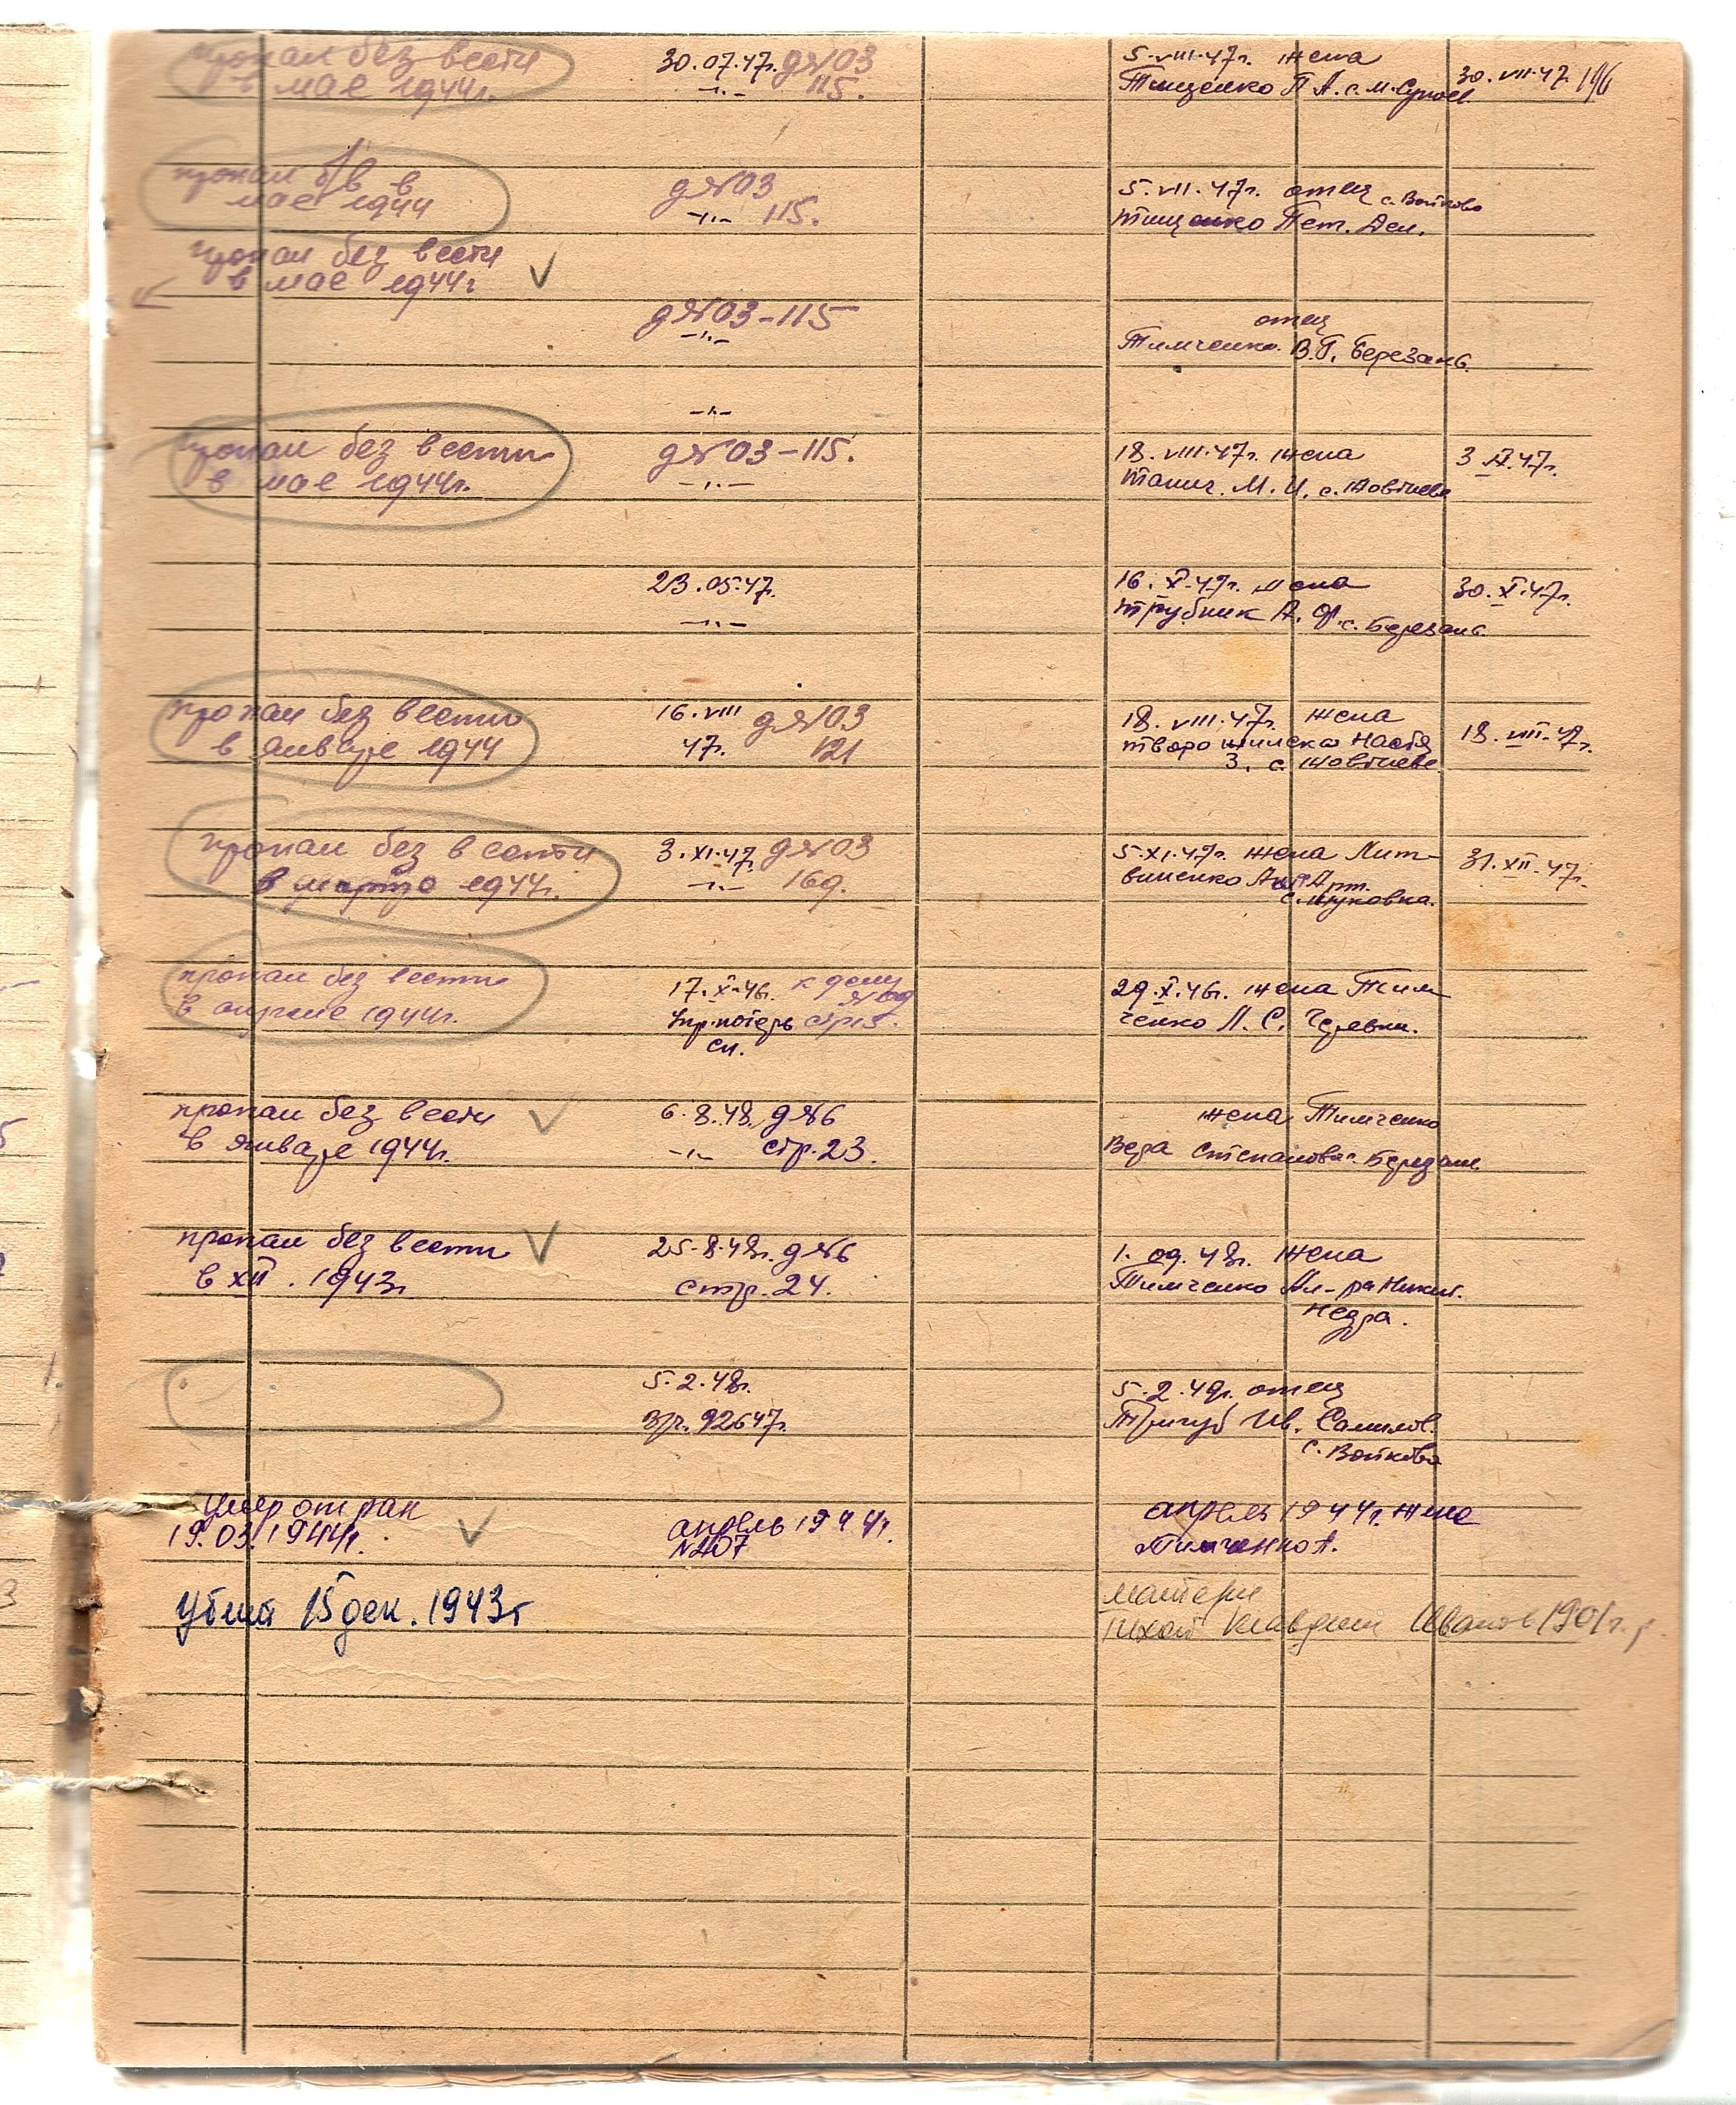 пропал без вести 30.07.47г. д№03 5.VIII.47г. жена
в мае 1944г. -"- 115. Тищенко П А. с. М. Супоев. 30.VII.47 196
пропал б/в в д№03 5.VII.47г. отец с. Войково
мае 1944 -"- 115. Тищенко Пет. Дем.
пропал без вести
в мае 1944г
д№03-115 отец
-"- Тимченко В.Г. Березань.
-"-
пропал без вести д№03-115. 18.VIII.47г. жена
в мае 1944г. -"- М. И. с. 3 47г.
23.05.47. 16.X.47г. жена 30.X.47г.
-"- Трубник А. Ф. с. Березань
пропал без вести 16.VIII д№03 18.VIII.47г. жена
в январе 1944 47г. 121 Настя 18.VIII.47г.
З. с.
пропал без вести 3.XI.47 д№03 5.XI.47г. жена Лит-
в марте 1944г. -"- 169. виненко Арт. 31.XII.47г.
пропал без вести 17.X.46г. к делу 29.X.46г. жена Тим
в апреле 1944г. Упр. потерь стр 5. ченко Л. С.
сп.
пропал без вести 6.8.48. д№6 жена Тимченко
в январе 1944г. -"- стр. 23. Вера Степановна. Березань
пропал без вести 25.8.48г. д№6 1.09.48г. жена
в XII. 1943г стр. 24. Тимченко Ал-ра Никит.
Недра.
5.2.48г. 5.2.49г. отец
92647г. Тригуб Ив. Самилов.
с. Войково
умер от ран апрель 1944г. жена
19.03.1944г. апрель 1944г. Тимченко А.
№407
Убит 15 дек. 1943г матери
Клавдии Иванов 1901г. р.